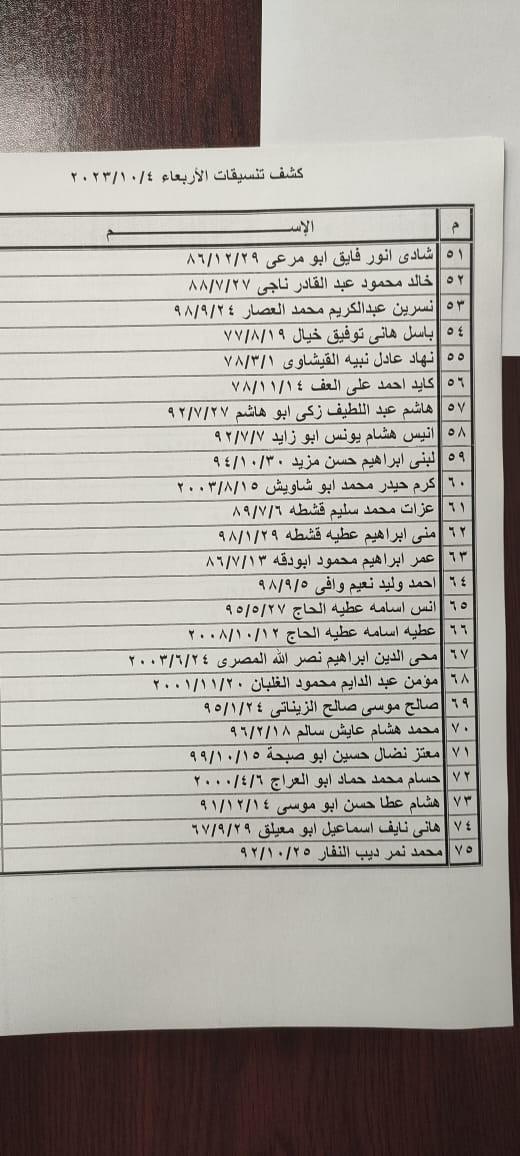 كشف تنسيقات الأربعاء ٢٠٢٣/١٠/٤
م الإســـــــــــــــــــــــــــــم
٥١ شادى انور فايق ابو مرعى ٨٦/١٢/٢٩
٥٢ خالد محمود عبد القادر ناجى ٨٨/٧/٢٧
٥٣ نسرين عبدالكريم محمد العصار ٩٨/٩/٢٤
٥٤ باسل هانى توفيق خيال ٧٧/٨/١٩
٥٥ نهاد عادل نبيه القيشاوى ٧٨/٣/١
٥٦ كايد احمد على العف ٧٨/١١/١٤
٥٧ هاشم عبد اللطيف زكى ابو هاشم ٩٢/٧/٢٧
٥٨ انيس هشام يونس ابو زايد ٩٢/٧/٧
٥٩ لبنى ابراهيم حسن مزيد ٩٤/١٠/٣٠
٦٠ كرم حيدر محمد ابو شاويش ٢٠٠٣/٨/١٥
٦١ عزات محمد سليم قشطه ٨٩/٧/٦
٦٢ منى ابراهيم عطيه قشطه ٩٨/١/٢٩
٦٣ عمر ابراهيم محمود ابودقه ٨٦/٧/١٣
٦٤ احمد وليد نعيم وافى ٩٨/٩/٥
٦٥ انس اسامه عطيه الحاج ٩٥/٥/٢٧
٦٦ عطيه اسامه عطيه الحاج ٢٠٠٨/١٠/١٢
٦٧ محى الدين ابراهيم نصر الله المصرى ٢٠٠٣/٦/٢٤
٦٨ مؤمن عبد الدايم محمود الغلبان ٢٠٠١/١١/٢٠
٦٩ صالح موسى صالح الزيناتى ٩٥/١/٢٤
٧٠ محمد هشام عايش سالم ٩٦/٢/١٨
٧١ معتز نضال حسين ابو صبحة ٩٩/١٠/١٥
٧٢ حسام محمد حماد ابو العراج ٢٠٠٠/٤/٦
٧٣ هشام عطا حسن ابو موسى ٩١/١٢/١٤
٧٤ هانى نايف اسماعيل ابو معيلق ٦٧/٩/٢٩
٧٥ محمد نمر ديب النفار ٩٢/١٠/٢٥